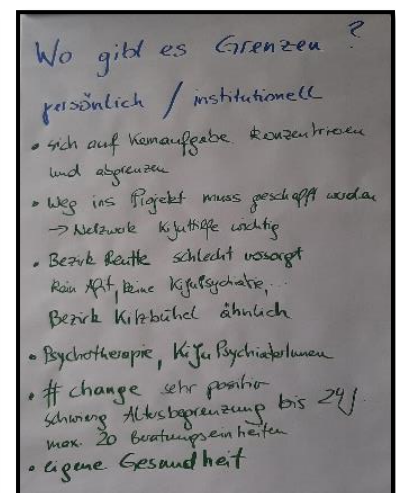 Wo gibt es Grenzen ?
persönlich / institutionell
• sich auf Kernaufgabe konzentrieren
und abgrenzen
• Weg ins Projekt muss geschafft werden
→ Netzwerk Kijuhilfe wichtig
• Bezirk Reutte schlecht versorgt
Kein Arzt, keine KijuPsychiatrie,..
Bezirk Kitzbühel ähnlich
• Psychotherapie, KiJu PsychiaterInnen
• # change sehr positiv
schwierig Altersbegrenzung bis 24 J.
max. 20 Beratungseinheiten
• eigene Gesundheit